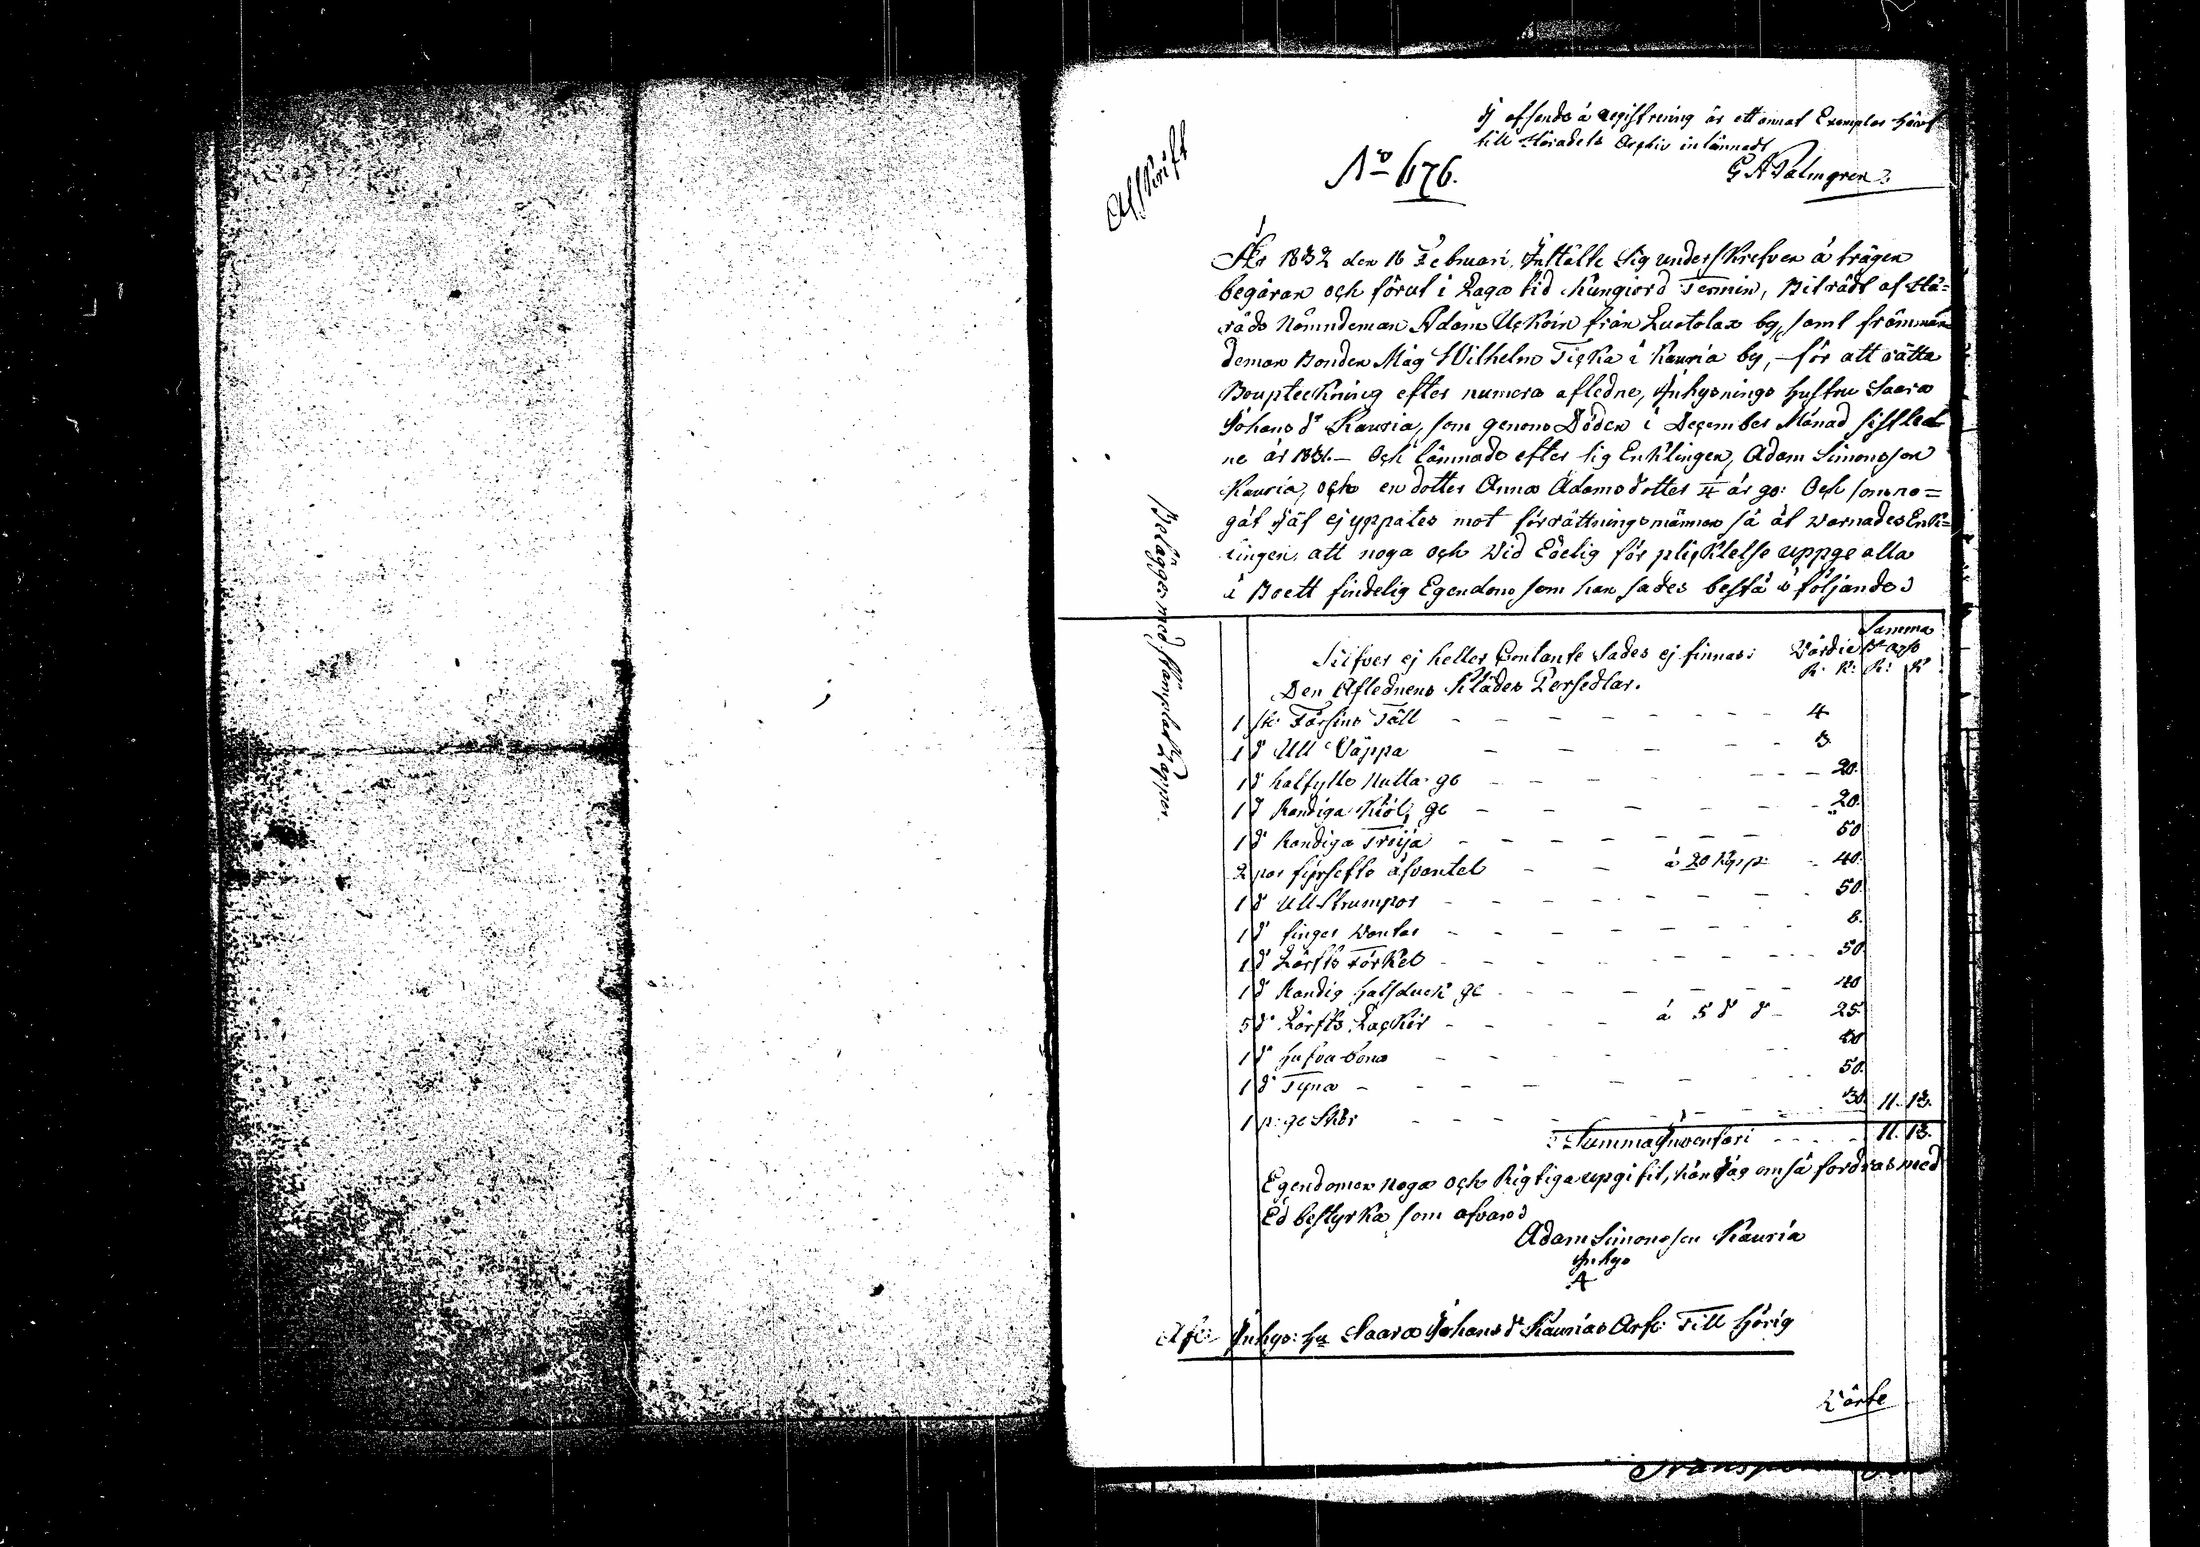 I afseende å Registrering är ett annat Exemplar häraf
till Häradets Archiv inlämnadt
G A Palmgren
No 676.
Afskrift
År 1832 den 16 Februari, Instälte sig underskrefven å trägen
begäran och förut i Laga tid kungiord Termin, Biträdt af Hä=
rads Nämndeman Adam Uckoin från Luotolax by, samt främman
deman Bonden Måg Wilhelm Ticka i Kauria by, för att rätta
Boupteckning efter numera afledne, Inhysnings hustru Saara
Johans dr Kauria, som genom Döden i December Månad sistled
ne år 1831. Och lämnade efter sig Enklingen, Adam Simonsson
Kauria, och en dotter Anna Adamsdotter 4 år go: Och som no=
gåt Jäf ej yppates mot förrättningsmännen så åt varnades Enk=
lingen, att noga och Wid Edelig för plicktelse uppge alla
i Boett findelig Egendom som han sades bestå i följande
Samma
Silfver ej heller Contante Sades ej finnas: Värdie
R: K: R: K
Den Aflednens Kläder Persedlar.
1 st: Fårskins Fäll 4
1 d Ull Vappa 3
1 d halfylle Nutta ge 20.
1 d Randiga Kiol, ge 20.
1 d Randiga Tröija 50
2 par fyrsefts åfvantel à 20 Kop 40.
1 d Ull Strumpor 50.
1 d finger Vantar 8.
1 d Lärfts Förkel 50.
1 d Randig halsduck ge 40
5 d Lärfts Lackor à 5 d d 25.
1 d hufvu bona
1 d Tyna 50.
1 p: ge Skor 30. 11. 13.
Summa Inventari 11. 13.
Egendomen noga och Rigtiga upgifit, kan Jag om så fordras med
Ed bestyrka, som ofvan
Adam Simonsson Kauria
Inhys
A
Afl: Inhys: hu Saara Johans dr Kaurias Arf: Till hörig
Belägges med stämplat Papper.
Värte
Transport